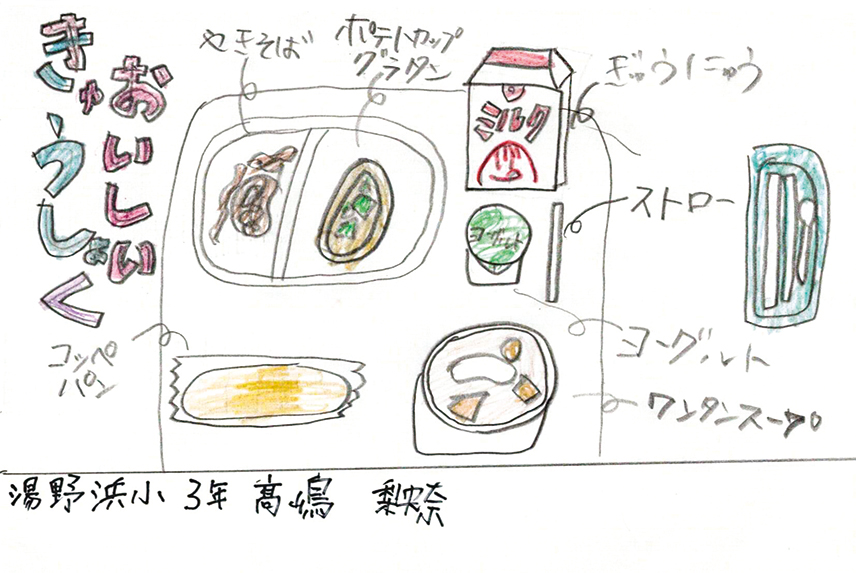 おいしい
きゅうしょく
やきそば
ポテトカップ
グラタン
ぎゅうにゅう
ミルク
ストロー
ヨーグルト
ヨーグルト
コッペ
パン
ワンタンスープ
湯野浜小 3年 髙嶋 梨央奈